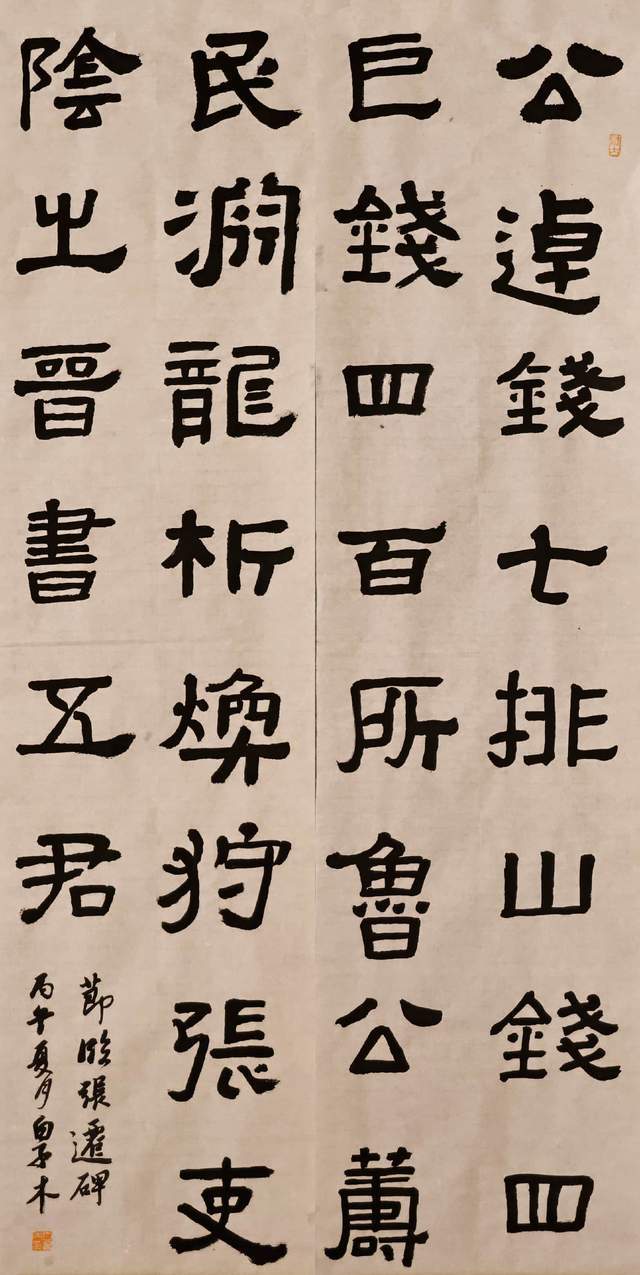 公逴錢七排山錢四
巨錢四百所魯公薵
民淵龍析煥狩張吏
陰之晉書五君
節臨張遷碑
丙午夏月白子木